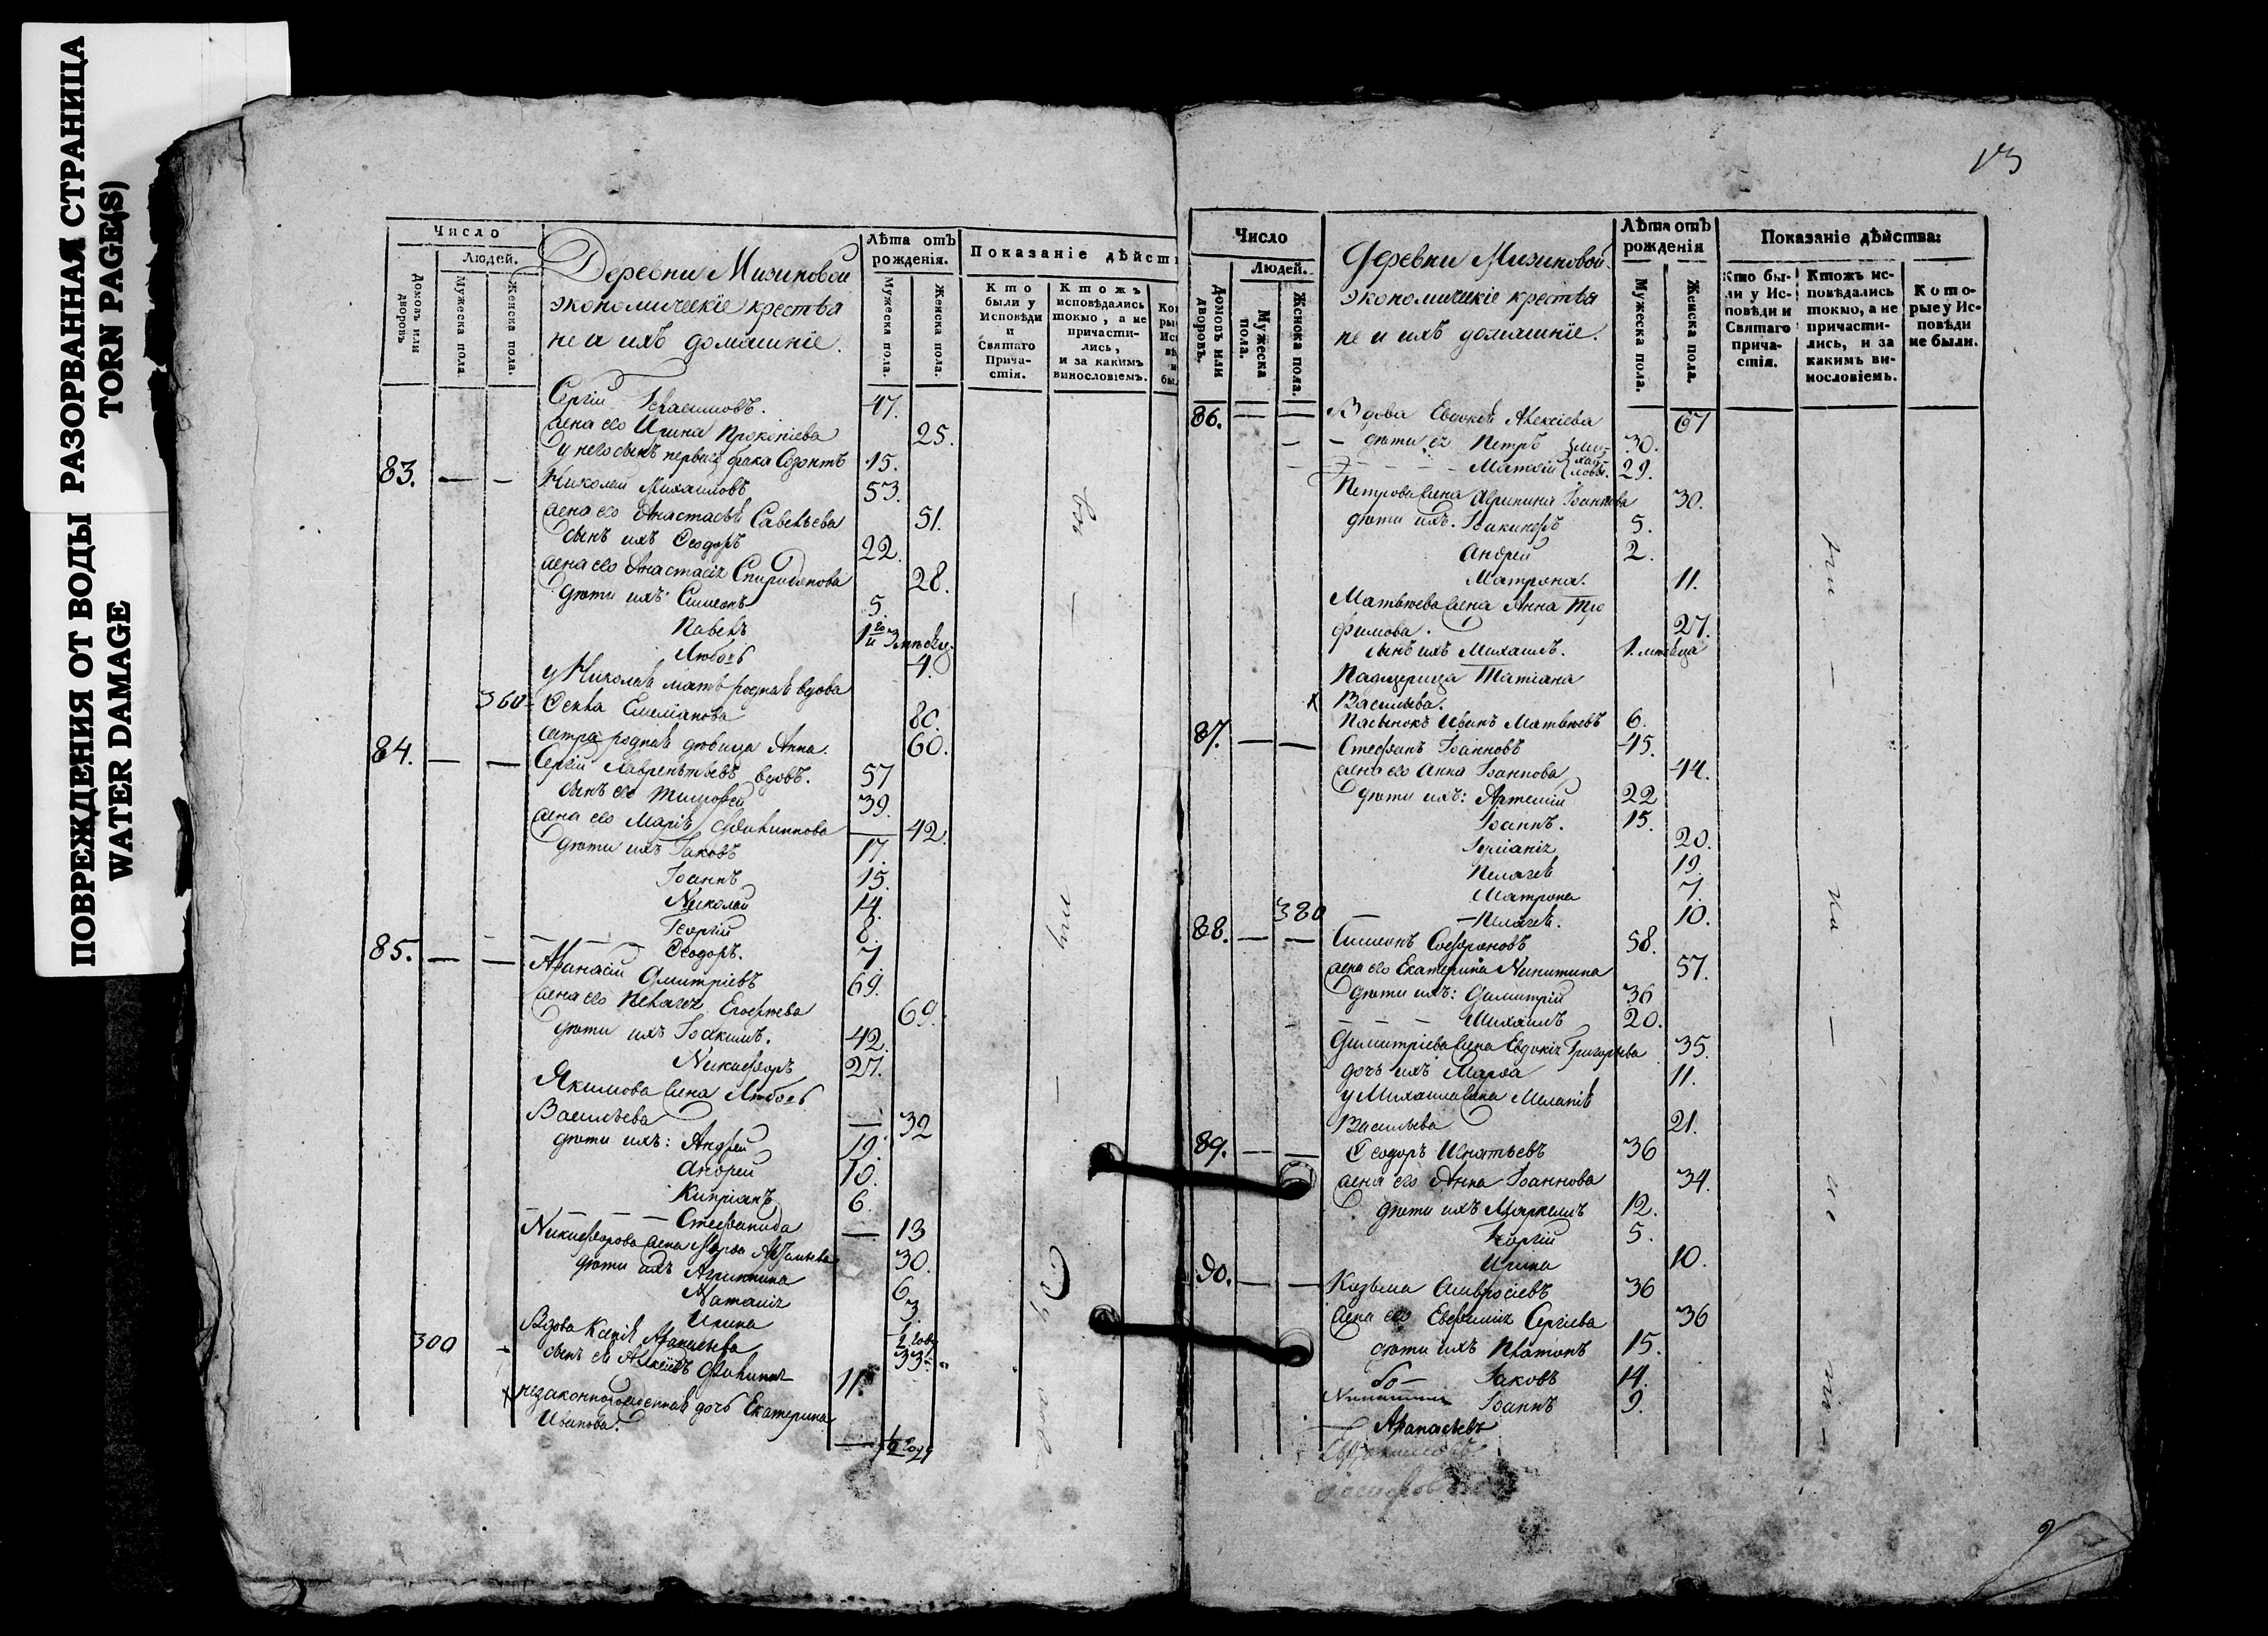 ПОВРЕЖДЕНИЯ ОТ ВОДЫ
WATER DAMAGE
РАЗОРВАННАЯ СТРАНИЦА
TORN PAGE(S)
Число
Людей.
Домовъ или дворовъ.
Мужеска пола.
Женска пола.
Деревни Мизиновой
экономическіе крестья
не и ихъ домашніе.
Лѣта отъ рожденія.
Мужеска пола.
Женска пола.
Показаніе дѣйст
Кто были у Исповѣди и Святаго Причастія.
Ктожъ исповѣдались токмо, а не причастились, и за какимъ винословіемъ.
Сергій Герасимовъ. 47.
жена его Ирина Прокопіева 25.
у него сынъ перваго брака Созонтъ 15.
83. — — Николай Михаиловъ 53.
жена его Анастасія Савельева 51.
сынъ ихъ Ѳеодоръ 22.
жена его Анастасія Спиридонова 28.
дѣти ихъ: Симеонъ 5.
Павелъ
Любовь 4.
у Николая мать родная вдова
360 Ѳекла Емеліанова 80.
сестра родная дѣвица Анна. 60.
84. — — Сергій Лаврентьевъ вдовъ. 57
сынъ его Тимоѳей 39.
жена его Марія Филиппова — 42.
дѣти ихъ Іаковъ 17.
Іоаннъ 15.
Николай 14.
Георгій 8.
Ѳеодоръ. 7
85. — — Афанасій Димитріевъ 69.
жена его Пелагея 69.
дѣти ихъ Іоакимъ. 42.
Никифоръ 27.
Якимова жена Любовь
Васильева — 32
дѣти ихъ: Андрей 19.
Андрей 10.
Кипріанъ 6.
Стефанида — 13
Никифорова жена Марѳа 30.
дѣти ихъ Агриппина 6
Наталія 3.
Ирина
Вдова Ксенія Афанасьева 33.
300 сынъ ея Алексій 11.
незаконнорожденная дочь Екатерина
Иванова.
Число
Людей.
Домовъ или дворовъ.
Мужеска пола.
Женска пола.
Деревни Мизиновой
экономическіе крестья
не и ихъ домашніе.
Лѣта отъ рожденія
Мужеска пола.
Женска пола.
Показаніе дѣйства:
Кто были у Исповѣди и Святаго причастія.
Ктожъ исповѣдались токмо, а не причастились, и за какимъ винословіемъ.
Которые у Исповѣди не были.
86. — — Вдова Евдокія Алексіева 67
дѣти ея Петръ Михайловы. 30.
Матвій 29.
Петрова жена Агрипина Іоаннова 30.
дѣти ихъ. 5.
Андрей 2.
Матрона. 11.
Матвѣева жена Анна Тро
фимова. 27.
сынъ ихъ Михаилъ. 1. мѣсяца
Падщерица Татіана
Васильева.
Пасынокъ Иванъ Матвѣевъ 6.
87. — — Стефанъ Іоанновъ 45.
жена его Анна Іоаннова 44.
дѣти ихъ: Артемій 22
Іоаннъ. 15.
20.
Пелагея 19.
Матрона 7.
380 — Пелагея. 10.
88. — — Симеонъ Софроновъ 58.
жена его Екатерина Никитина 57.
дѣти ихъ: Димитрій 36
Михаилъ 20.
Димитріева жена Евдокія Григорьева 35.
дочь ихъ Марѳа 11.
у Михаила жена Меланія
Васильева 21.
89. — — Ѳеодоръ Игнатьевъ 36
жена его Анна Іоаннова 34.
дѣти ихъ Маркелъ 12.
Георгій 5.
Ирина 10.
90. — — Козьма Амвросіевъ 36
жена его Евфимія Сергіева 36
дѣти ихъ Платонъ 15.
Іаковъ 14.
Іоаннъ 9.
Афанасьевъ